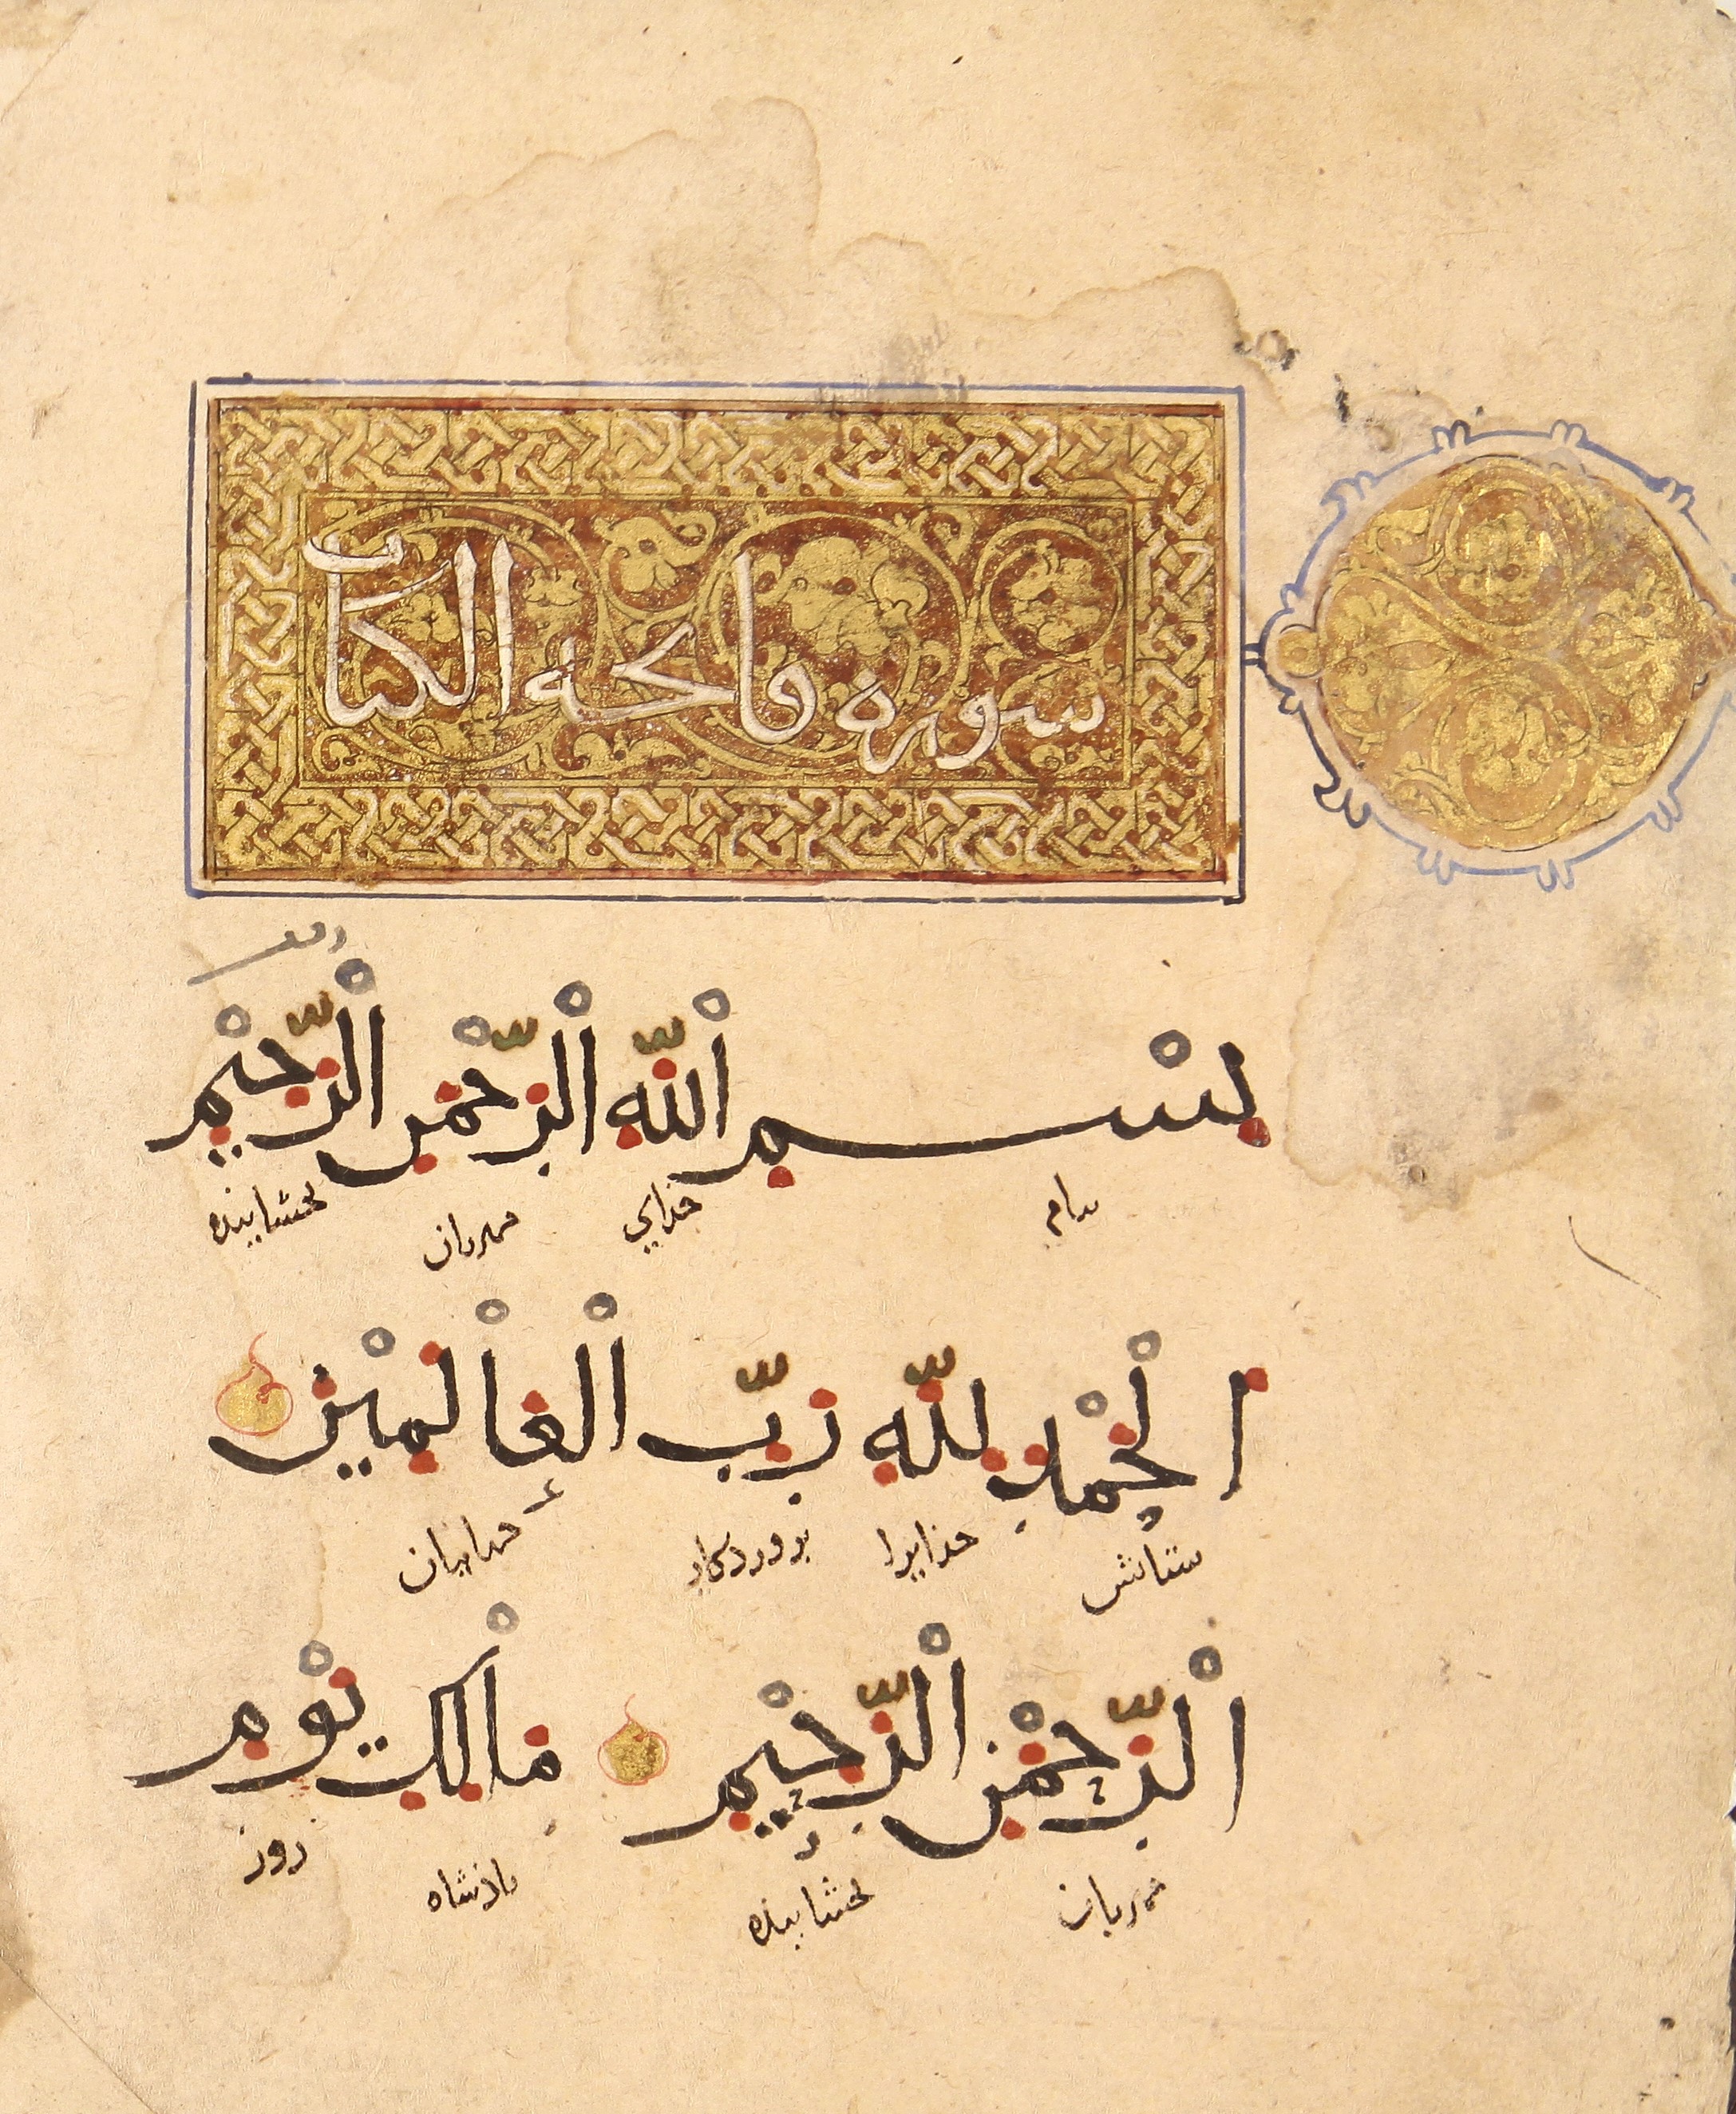 سورة فاتحة الكتاب
بسم الله الرحمن الرحيم
بنام خذاي مهربان بخشاينده
الحمد لله رب العالمين
ستايش خذايرا پروردگار جهانيان
الرحمن الرحيم مالك يوم
مهربان بخشاينده پاذشاه روز